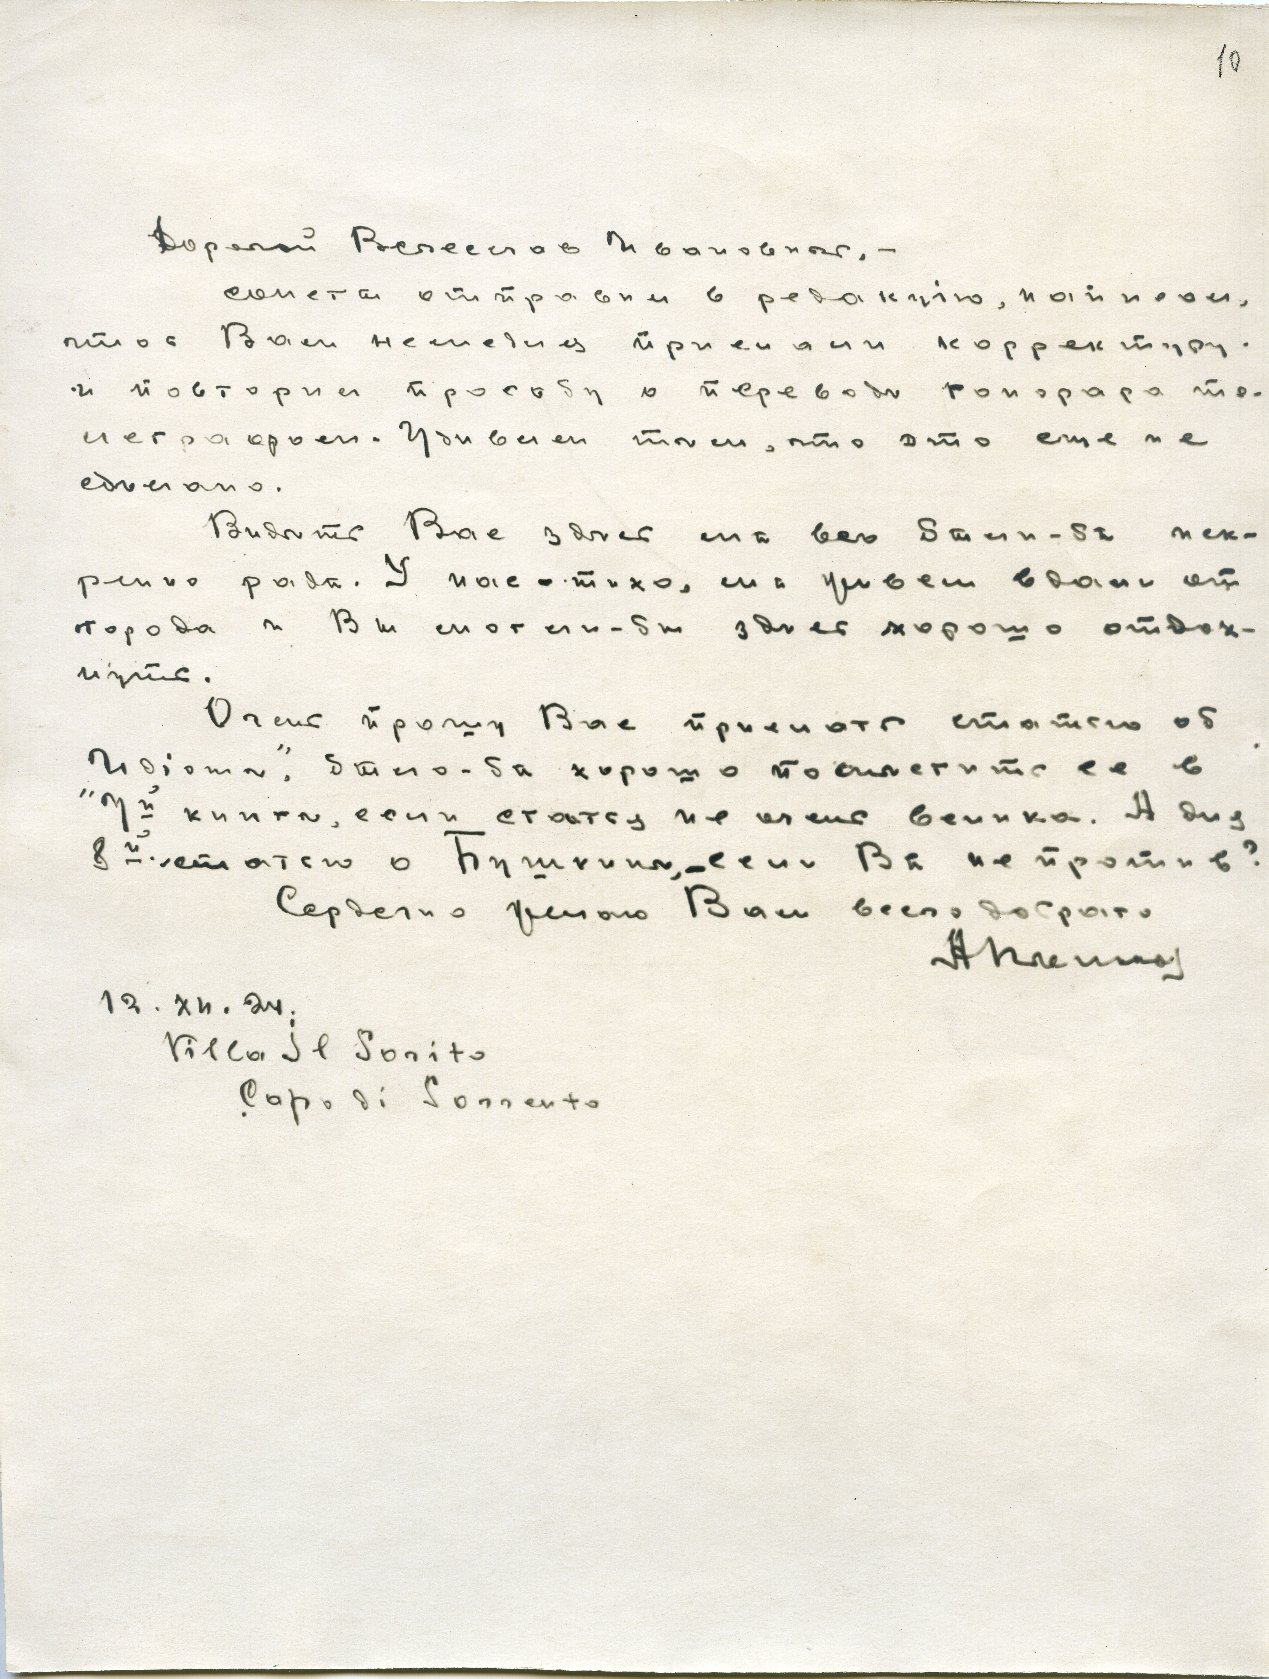 10
Дорогой Вячеслав Иванович, —
сонеты отправил в редакцию,
чтоб Вам немедля прислали корректуру.
и повторил просьбу о переводе гонорара те-
леграфом. Удивлен тем, что это еще не
сделано.
Видеть Вас здесь мы все были-бы иск-
ренно рады. У нас — тихо, мы живем вдали от
города и Вы могли-бы здесь хорошо отдох-
нуть.
Очень прошу Вас прислать статью об
"Идіоте", было-бы хорошо поместить ее в
7й книге, если статья не очень велика. А для
8й — статью о Пушкине, — если Вы не против?
Сердечно желаю Вам всего доброго
А Пешков
12. XII. 24.
Villa Il Sorito
Capo di Sorrento